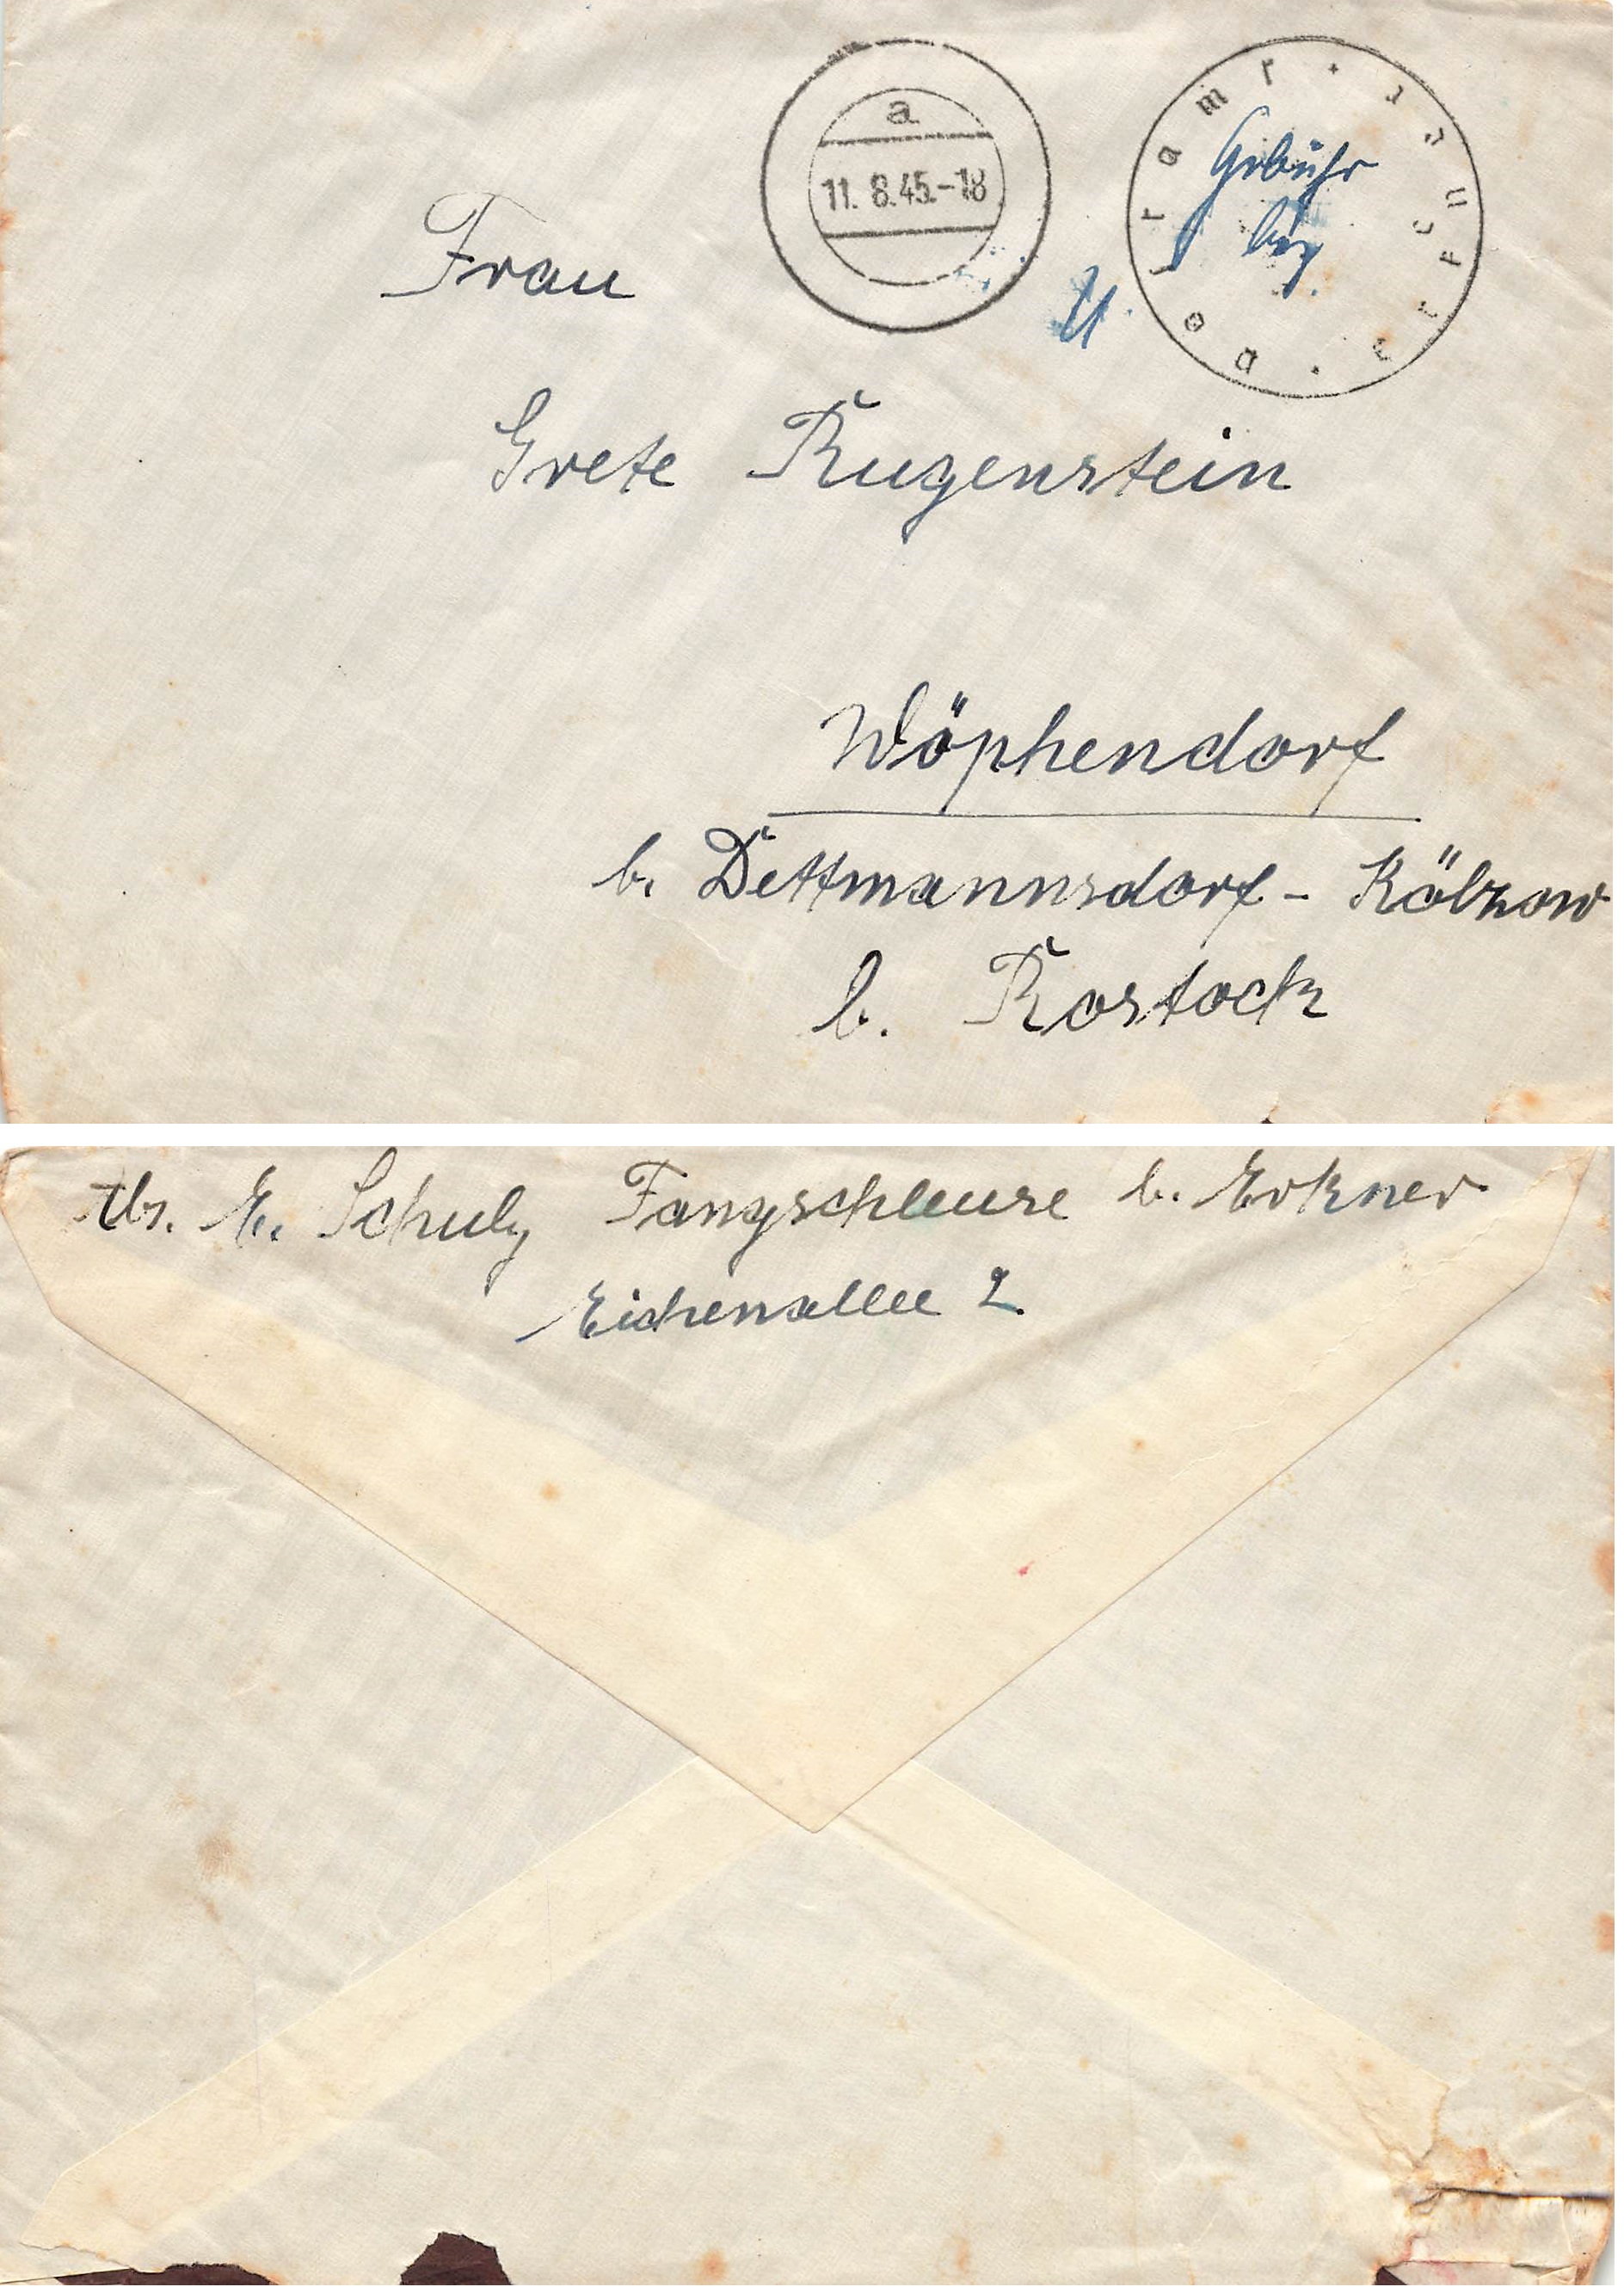 a
11. 8.45.-18
Gebühr
bez.
Frau
Grete Rugenstein
Wöphendorf
b. Dettmannsdorf - Kölzow
b. Rostock
Abs. E. Schulz Fangschleuse b. Erkner
Eichenallee 2